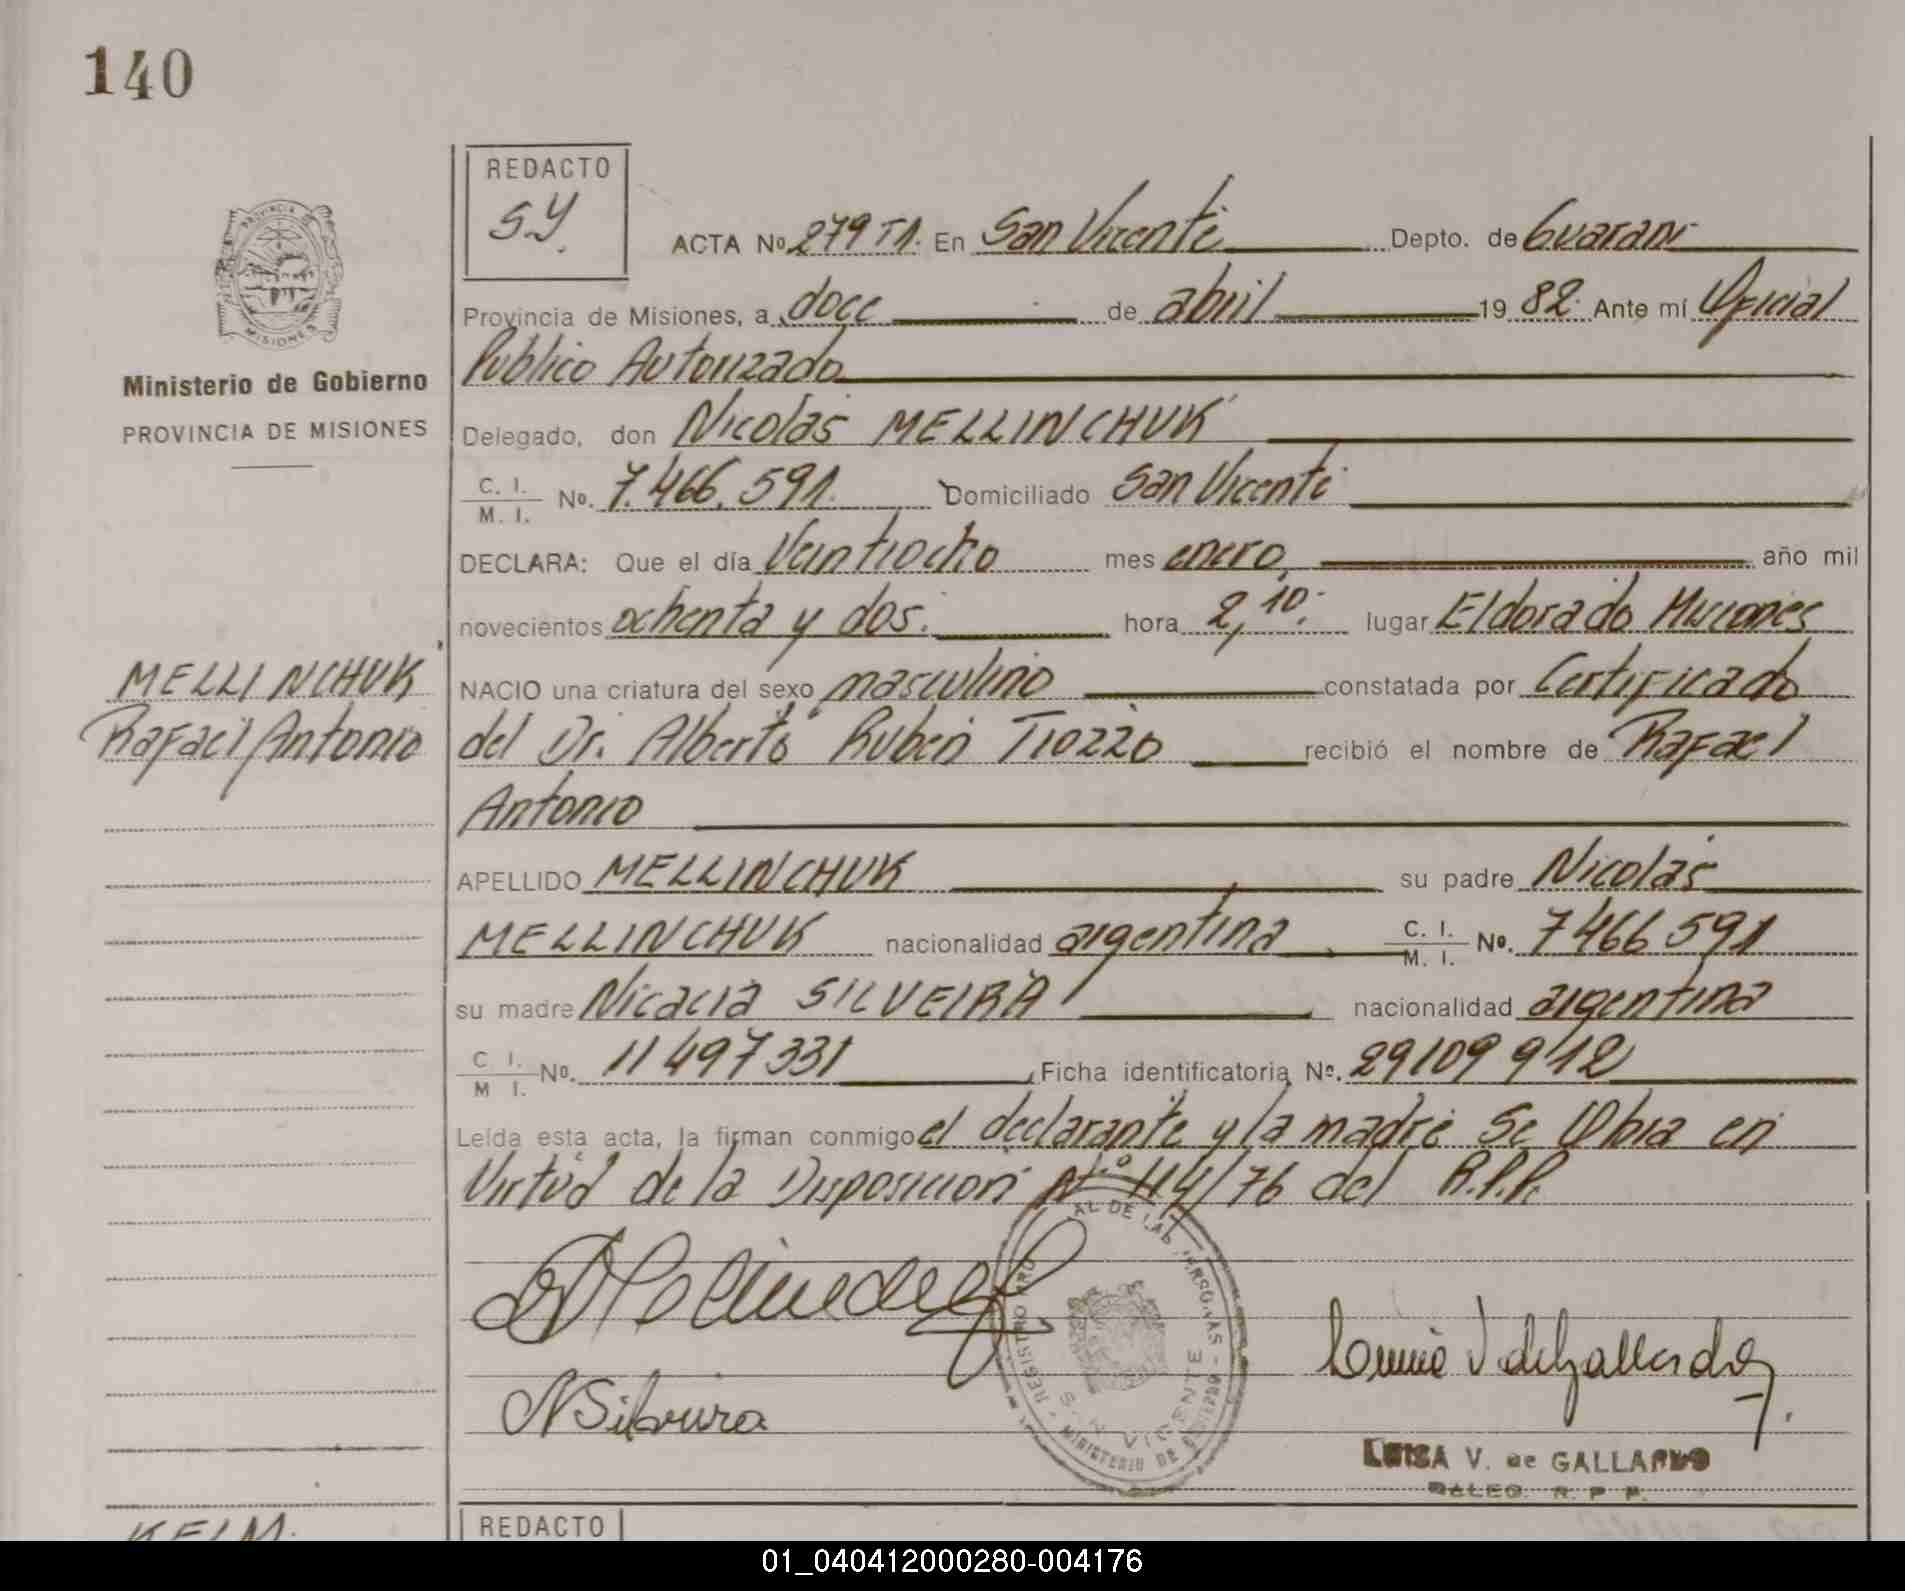 140
REDACTO
S.Y.
ACTA No. 279 T1. En San Vicente Depto. de Guaraní
PROVINCIA
MISIONES
Provincia de Misiones, a doce de abril 1982. Ante mí Oficial
Publico Autorizado
Ministerio de Gobierno
PROVINCIA DE MISIONES
Delegado, don Nicolás MELLINCHUK
C. I.
M. I. No. 7.466.591. Domiciliado San Vicente
DECLARA: Que el día Veintiocho mes enero, año mil
novecientos ochenta y dos. hora 2,10. lugar Eldorado Misiones
MELLINCHUK
NACIO una criatura del sexo masculino constatada por Certificado
Rafael Antonio
del Dr. Alberto Ruben Tiozzo recibió el nombre de Rafael
Antonio
APELLIDO MELLINCHUK su padre Nicolás
MELLINCHUK nacionalidad argentina C. I.
M. I. No. 7466591
su madre Nicacia SILVEIRA nacionalidad argentina
C I.
M I. No. 11497331 Ficha identificatoria No. 29109912
Leída esta acta, la firman conmigo el declarante y la madre Se Obra en
Virtud de la Disposición Nº 114/76 del R.P.P.
N Silveira
REGISTRO PRO AL DE LAS PERSONAS - MINISTERIO DE GOBIERNO -
S. N VICENTE
LUISA V. de GALLARDO
DALEG. R. P. P.
KELM.
REDACTO
01_040412000280-004176